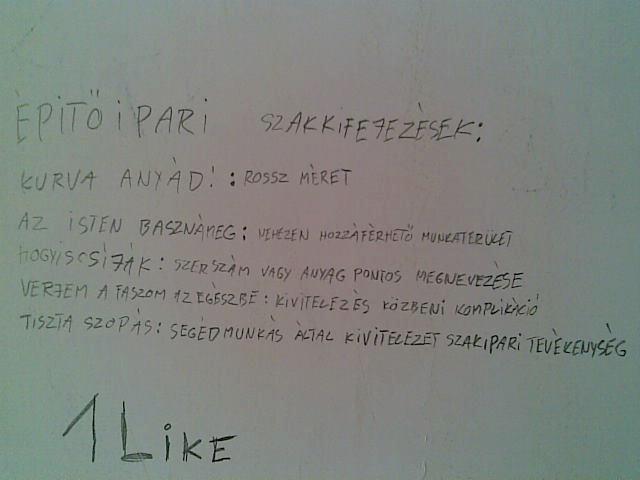 ÈPITŐIPARI SZAKKIFEJEZÈSEK:
KURVA ANYÀD! : ROSSZ MÈRET
AZ ISTEN BASZNÀMEG: NEHEZEN HOZZÀFÈRHETŐ MUNKATERÜLET
HOGYISCSÍJÁK: SZERSZÀM VAGY ANYAG PONTOS MEGNEVEZÈSE
VERJEM A FASZOM AZ EGÈSZBE: KIVITELEZÈS KÖZBENI KOMPLIKÀCIÓ
TISZTA SZOPÀS: SEGÉDMUNKÀS ÀLTAL KIVITELEZET SZAKIPARI TEVÈKENYSÈG
1 LiKE